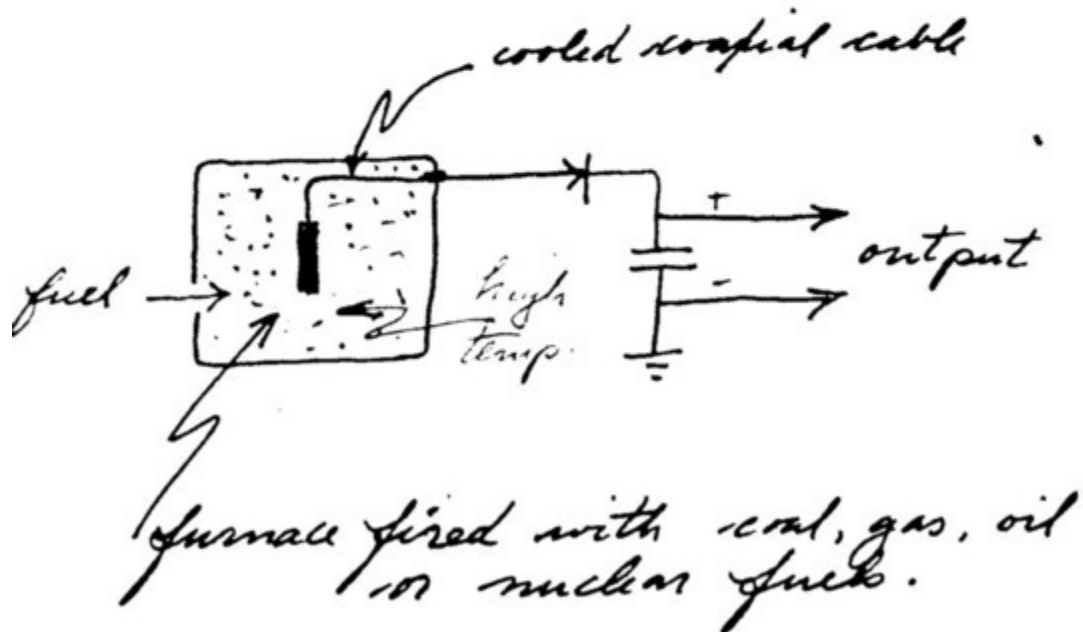 cooled coaxial cable
+
output
-
fuel
high
temp.
furnace fired with coal, gas, oil
or nuclear fuels.